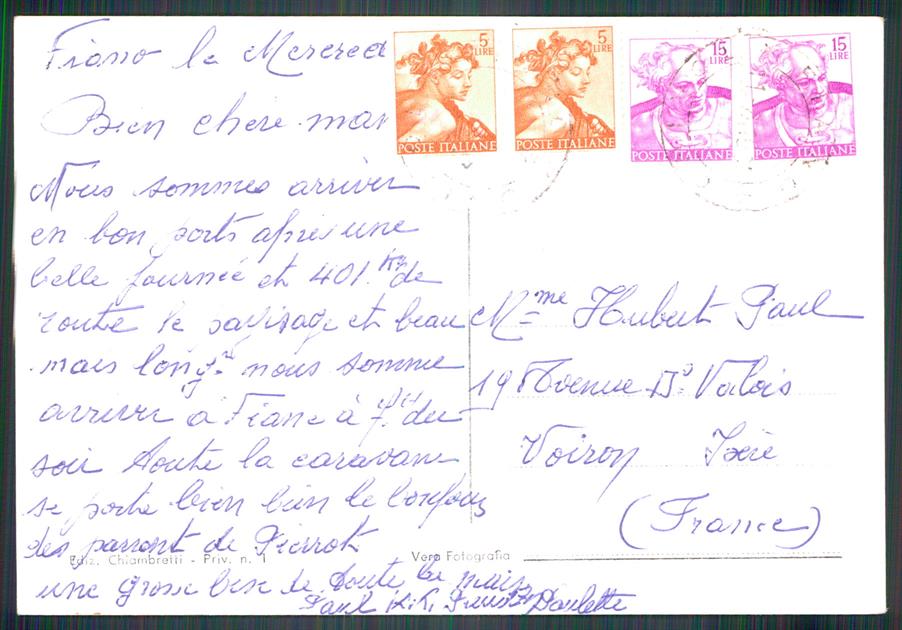 Fiano le Mercred
Bien chère mam
Nous sommes arriver
en bon ports après une
belle journée et 401 km de
route le paysage et beau
mais long nous somme
arriver a Fiano à 7 H du
soir toute la caravane
se porte bien bien le bonjour
des parront de Pierrot
une grosse bise de toute la
Paul Paulette
5 LIRE
POSTE ITALIANE
5 LIRE
POSTE ITALIANE
15 LIRE
POSTE ITALIANE
15 LIRE
POSTE ITALIANE
Mme Hubert Paul
19 Avenue Du Valois
Voiron Isère
(France)
Ediz. Chiambretti - Priv. n. 1
Vera Fotografia